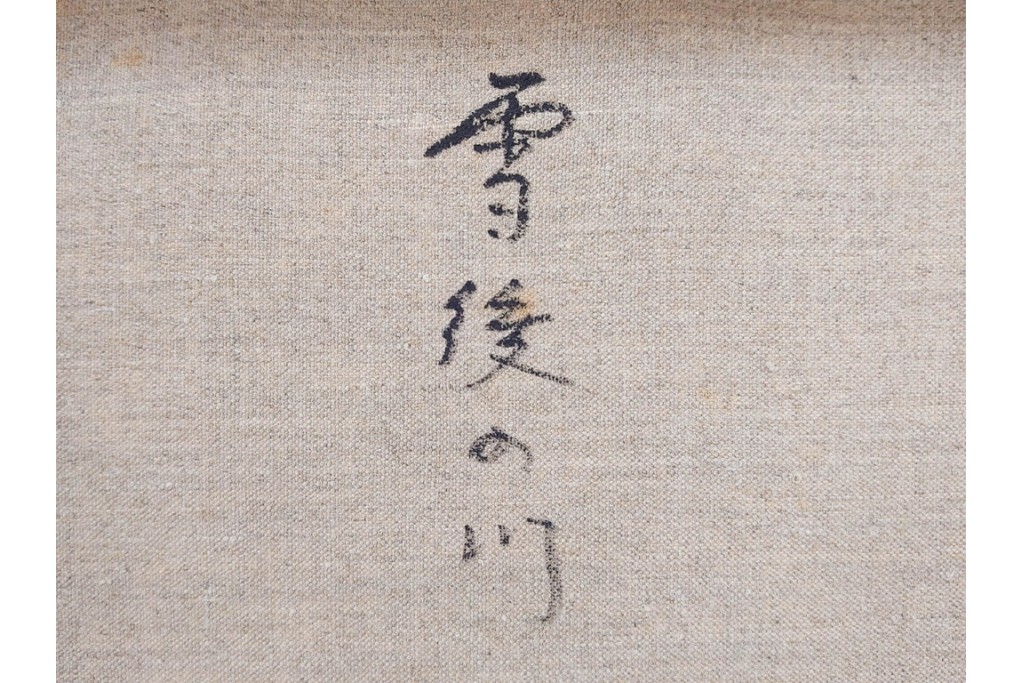 雪後の川